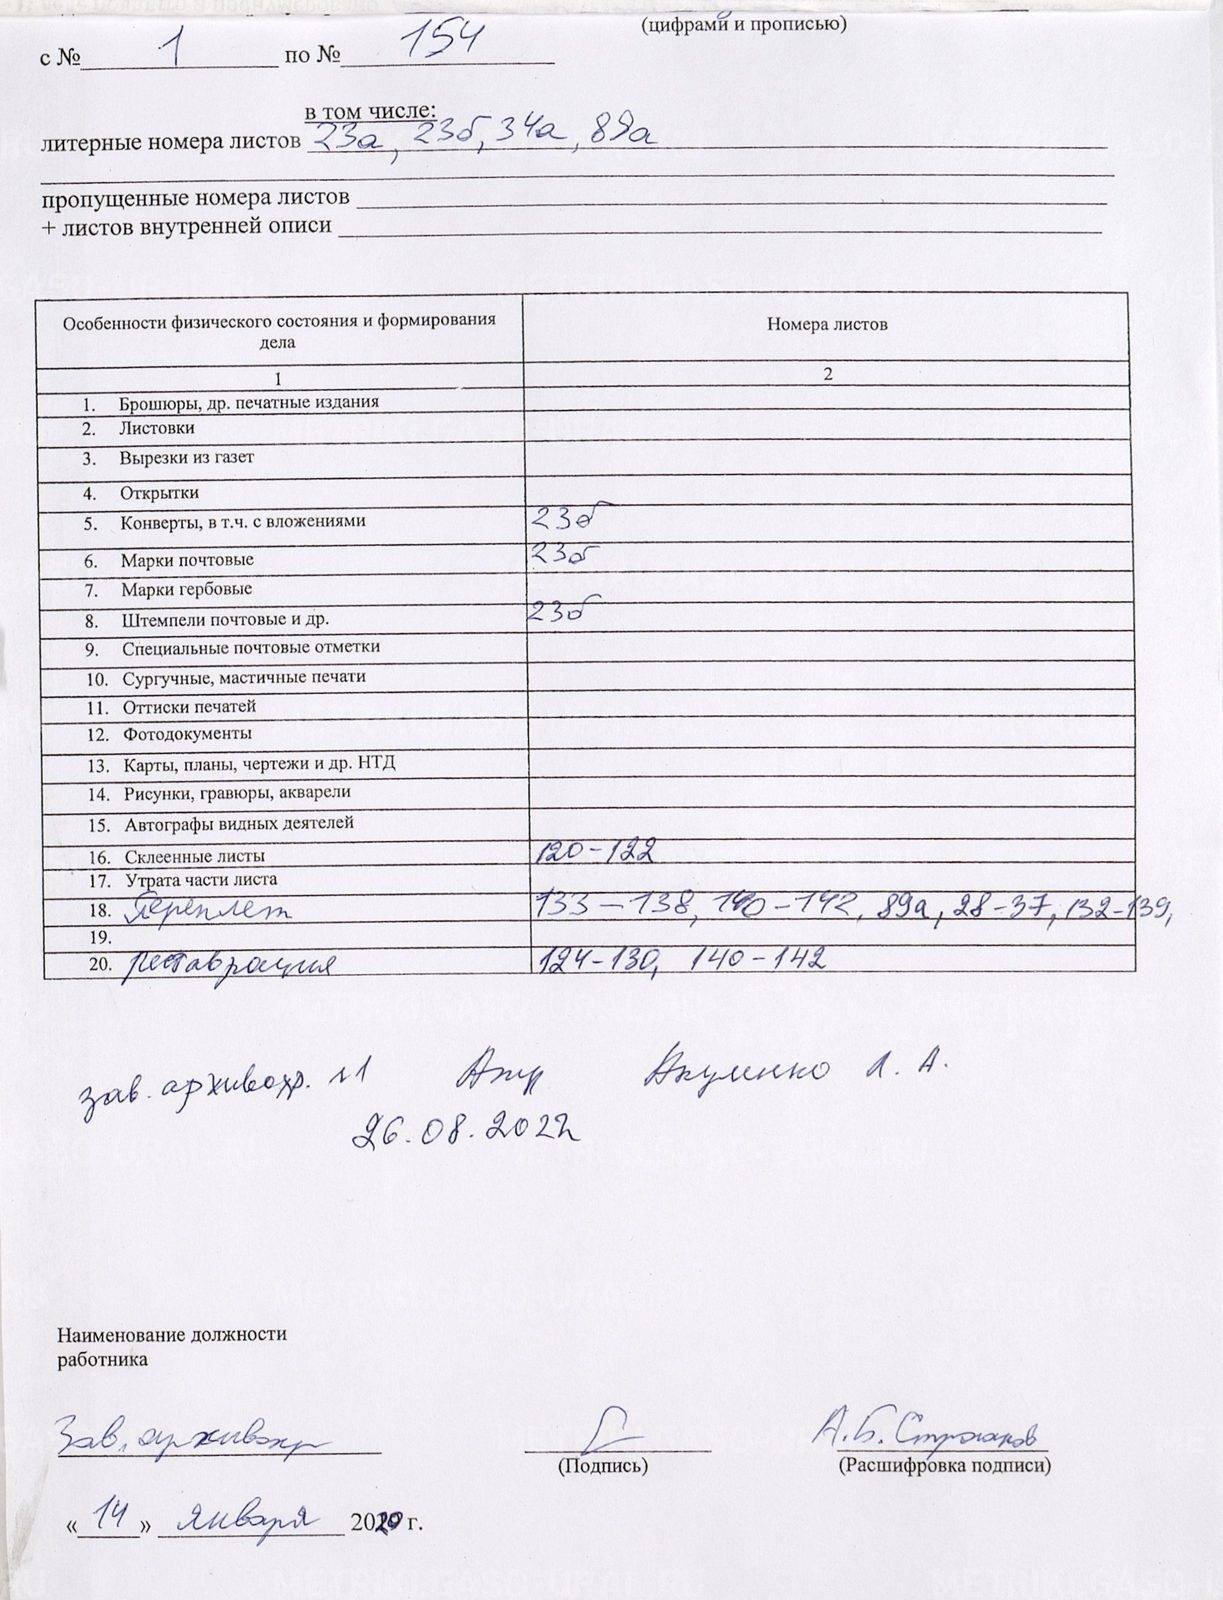 (цифрами и прописью)
с № 1 по № 154
в том числе:
литерные номера листов 23а, 23б, 34а, 89а
пропущенные номера листов
+ листов внутренней описи
Особенности физического состояния и формирования дела Номера листов
1 2
1. Брошюры, др. печатные издания
2. Листовки
3. Вырезки из газет
4. Открытки
5. Конверты, в т.ч. с вложениями 23б
6. Марки почтовые 23б
7. Марки гербовые
8. Штемпели почтовые и др. 23б
9. Специальные почтовые отметки
10. Сургучные, мастичные печати
11. Оттиски печатей
12. Фотодокументы
13. Карты, планы, чертежи и др. НТД
14. Рисунки, гравюры, акварели
15. Автографы видных деятелей
16. Склеенные листы 120-122
17. Утрата части листа
18. Переплет 133-138, 140-142, 89а, 28-37, 132-139,
19.
20. реставрация 124-130, 140-142
зав. архивохр. №1 Якуменко А.
26.08.2022
Наименование должности
работника
Зав. архивохр А.Б. Строганов
(Подпись) (Расшифровка подписи)
«14» января 2020 г.